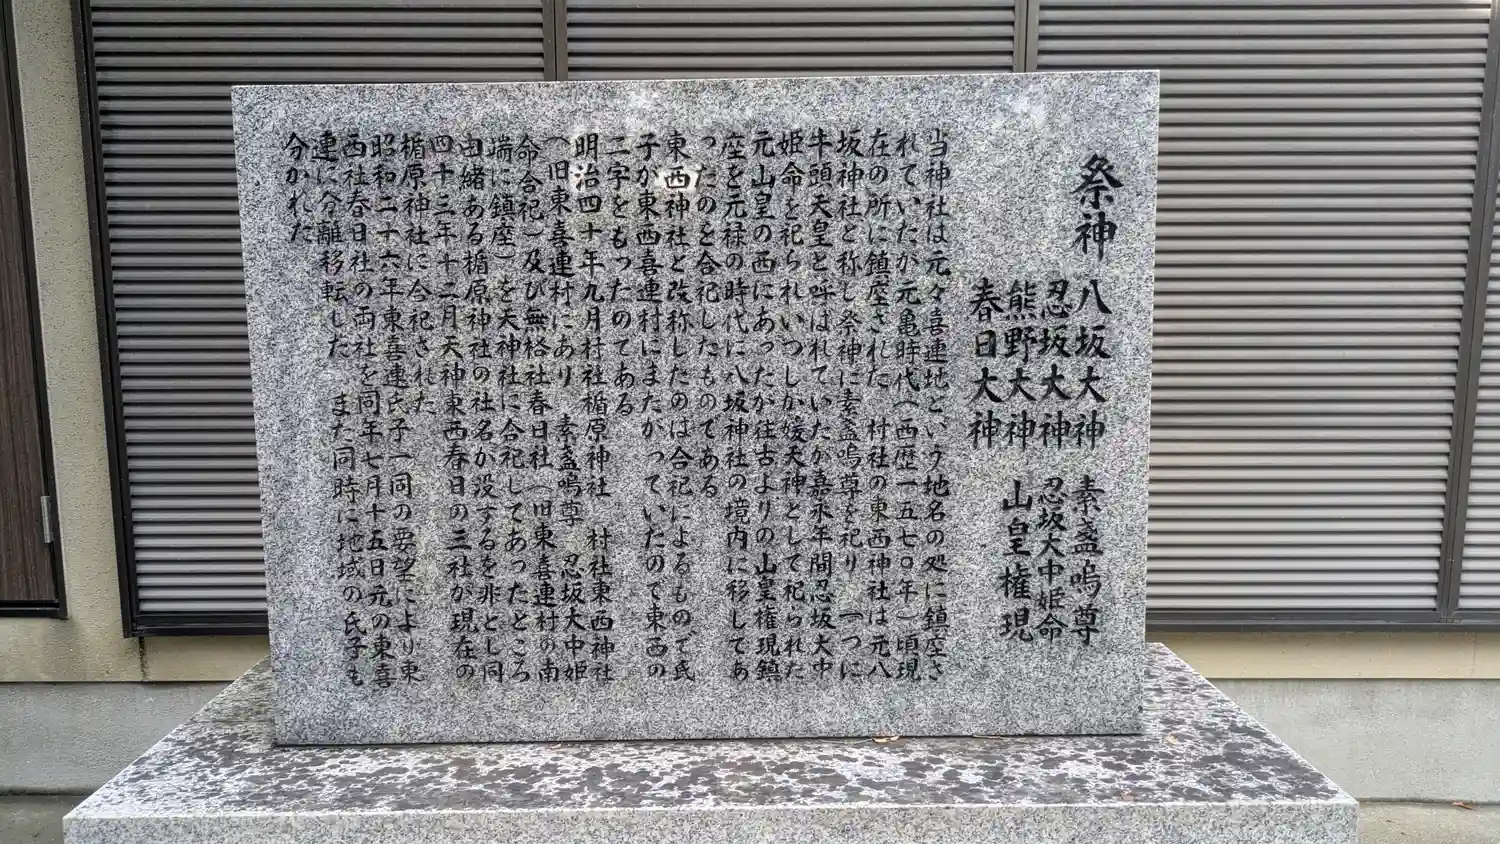 祭神 八坂大神 素盞嗚尊
忍坂大神 忍坂大中姫命
熊野大神 山皇権現
春日大神
当神社は元々喜連地という地名の処に鎮座さ
れていたが元亀時代(西歴一五七〇年)頃現
在の所に鎮座された 村社の東西神社は元八
坂神社と称し祭神に素盞嗚尊を祀り 一つに
牛頭天皇と呼ばれていたが嘉永年間忍坂大中
姫命を祀られいつしか媛天神として祀られた
元山皇の西にあったが往古よりの山皇権現鎮
座を元禄の時代に八坂神社の境内に移してあ
ったのを合祀したものである
東西神社と改称したのは合祀によるもので氏
子が東西喜連村にまたがっていたので東西の
二字をもったのである
明治四十年九月村社楯原神社 村社東西神社
(旧東喜連村にあり 素盞嗚尊 忍坂大中姫
命合祀)及び無格社春日社(旧東喜連村の南
端に鎮座)を天神社に合祀してあったところ
由緒ある楯原神社の社名が没するを非とし同
四十三年十二月天神東西春日の三社が現在の
楯原神社に合祀された
昭和二十六年東喜連氏子一同の要望により東
西社春日社の両社を同年七月十五日元の東喜
連に分離移転した また同時に地域の氏子も
分かれた